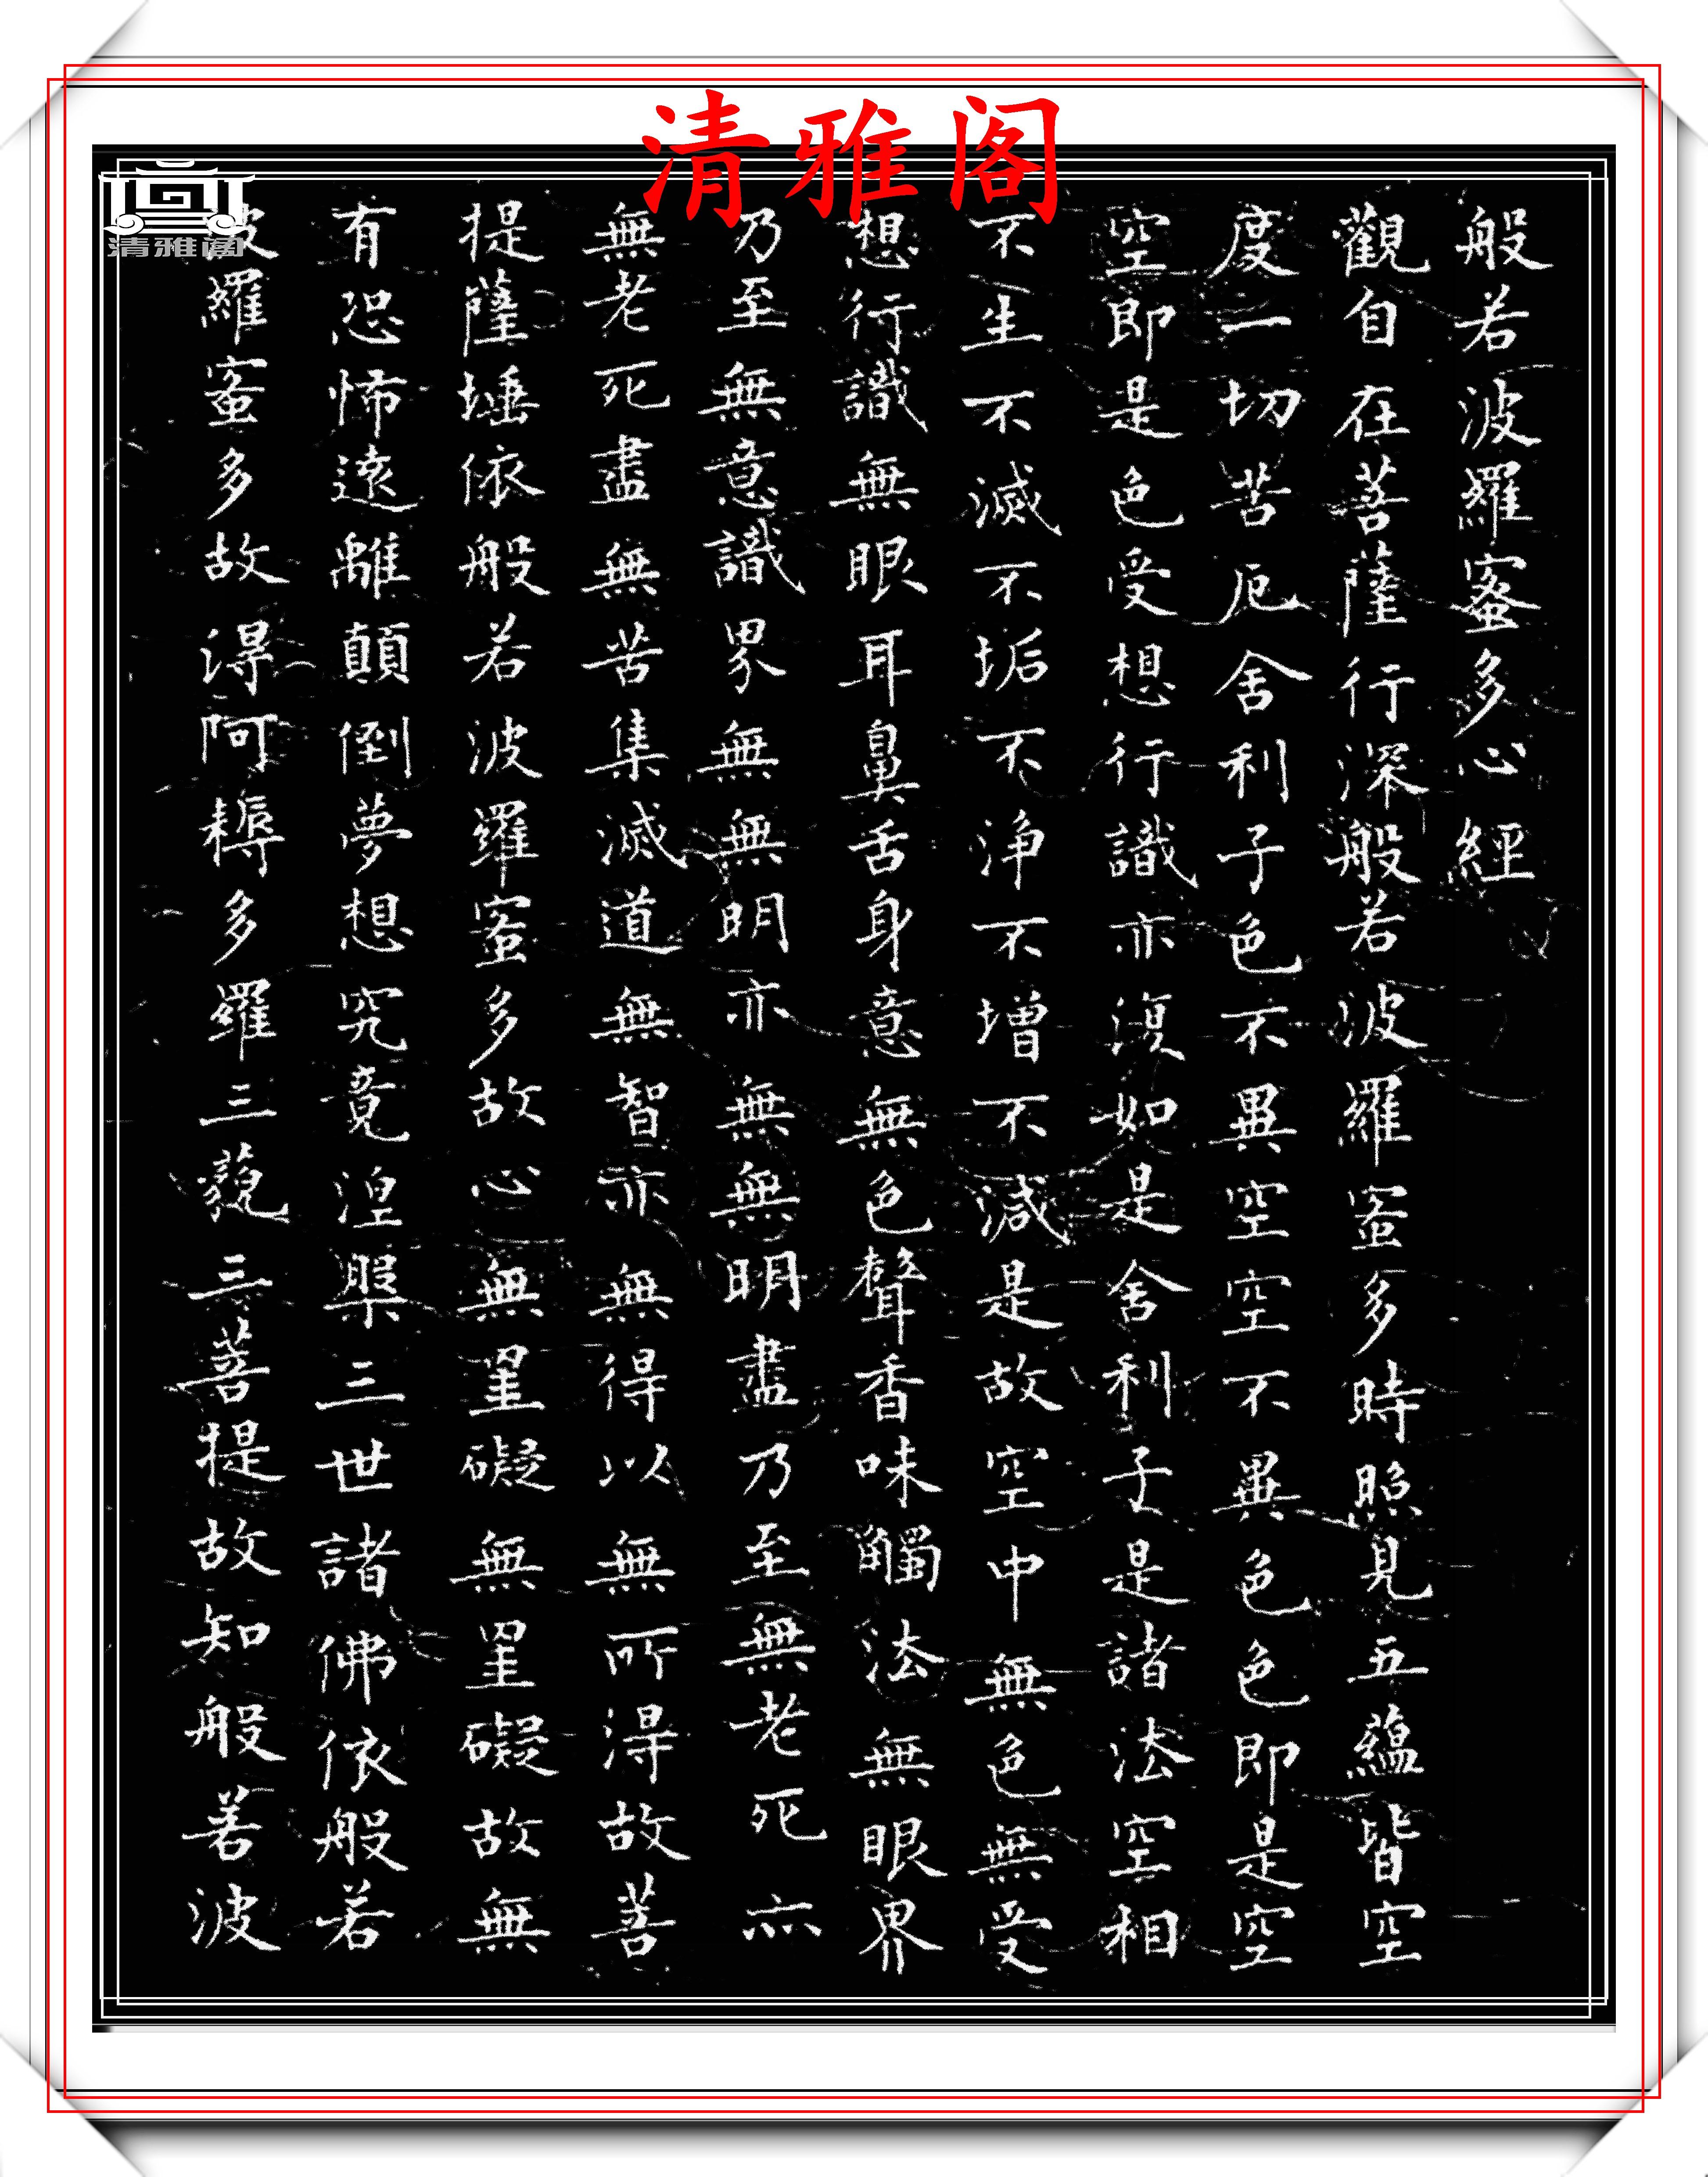 清雅阁
清雅阁
般若波羅蜜多心經
觀自在菩薩行深般若波羅蜜多時照見五蘊皆空
度一切苦厄舍利子色不異空空不異色色即是空
空即是色受想行識亦復如是舍利子是諸法空相
不生不滅不垢不淨不增不減是故空中無色無受
想行識無眼耳鼻舌身意無色聲香味觸法無眼界
乃至無意識界無無明亦無無明盡乃至無老死亦
無老死盡無苦集滅道無智亦無得以無所得故菩
提薩埵依般若波羅蜜多故心無罣礙無罣礙故無
有恐怖遠離顛倒夢想究竟涅槃三世諸佛依般若
波羅蜜多故得阿耨多羅三藐三菩提故知般若波